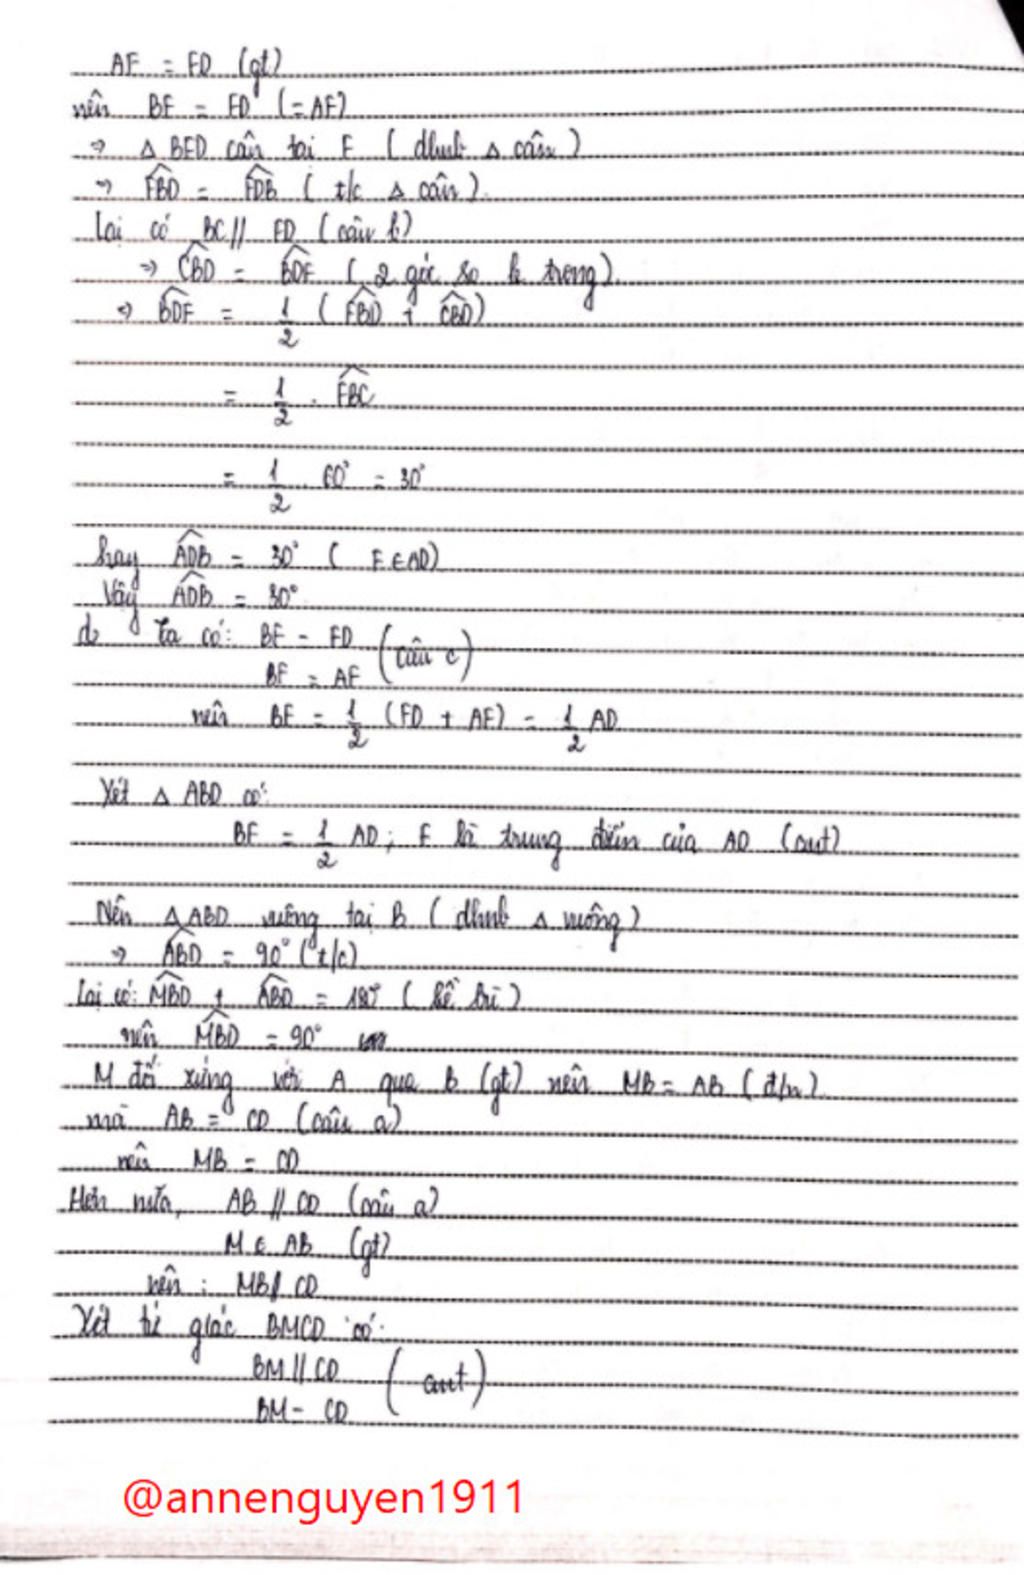 AF = FD (gt)
nên BF = FD (= AF)
⇒ Δ BFD cân tại F ( dhnb Δ cân )
⇒ FBD = FDB ( t/c Δ cân ).
Lại có BC // FD ( câu b)
⇒ CBD = BDF ( 2 góc so le trong).
⇒ BDF = 1/2 ( FBD + CBD )
= 1/2 . FBC
= 1/2 . 60° = 30°
hay ADB = 30° ( F ∈ AD)
Vậy ADB = 30°
d, Ta có: BF = FD (câu c)
BF = AF
nên BF = 1/2 (FD + AF) = 1/2 AD
Xét Δ ABD có:
BF = 1/2 AD; F là trung điểm của AD (cmt)
Nên Δ ABD vuông tại B ( dhnb Δ vuông )
⇒ ABD = 90° (t/c)
Lại có: MBD + ABD = 180° ( kề bù )
nên MBD = 90°
M đối xứng với A qua B (gt) nên MB = AB ( đ/n ).
mà AB = CD (câu a)
nên MB = CD
Hơn nữa, AB // CD (câu a)
M ∈ AB (gt)
nên : MB // CD
Xét tứ giác BMCD có:
BM // CD (cmt)
BM = CD
@annenguyen1911